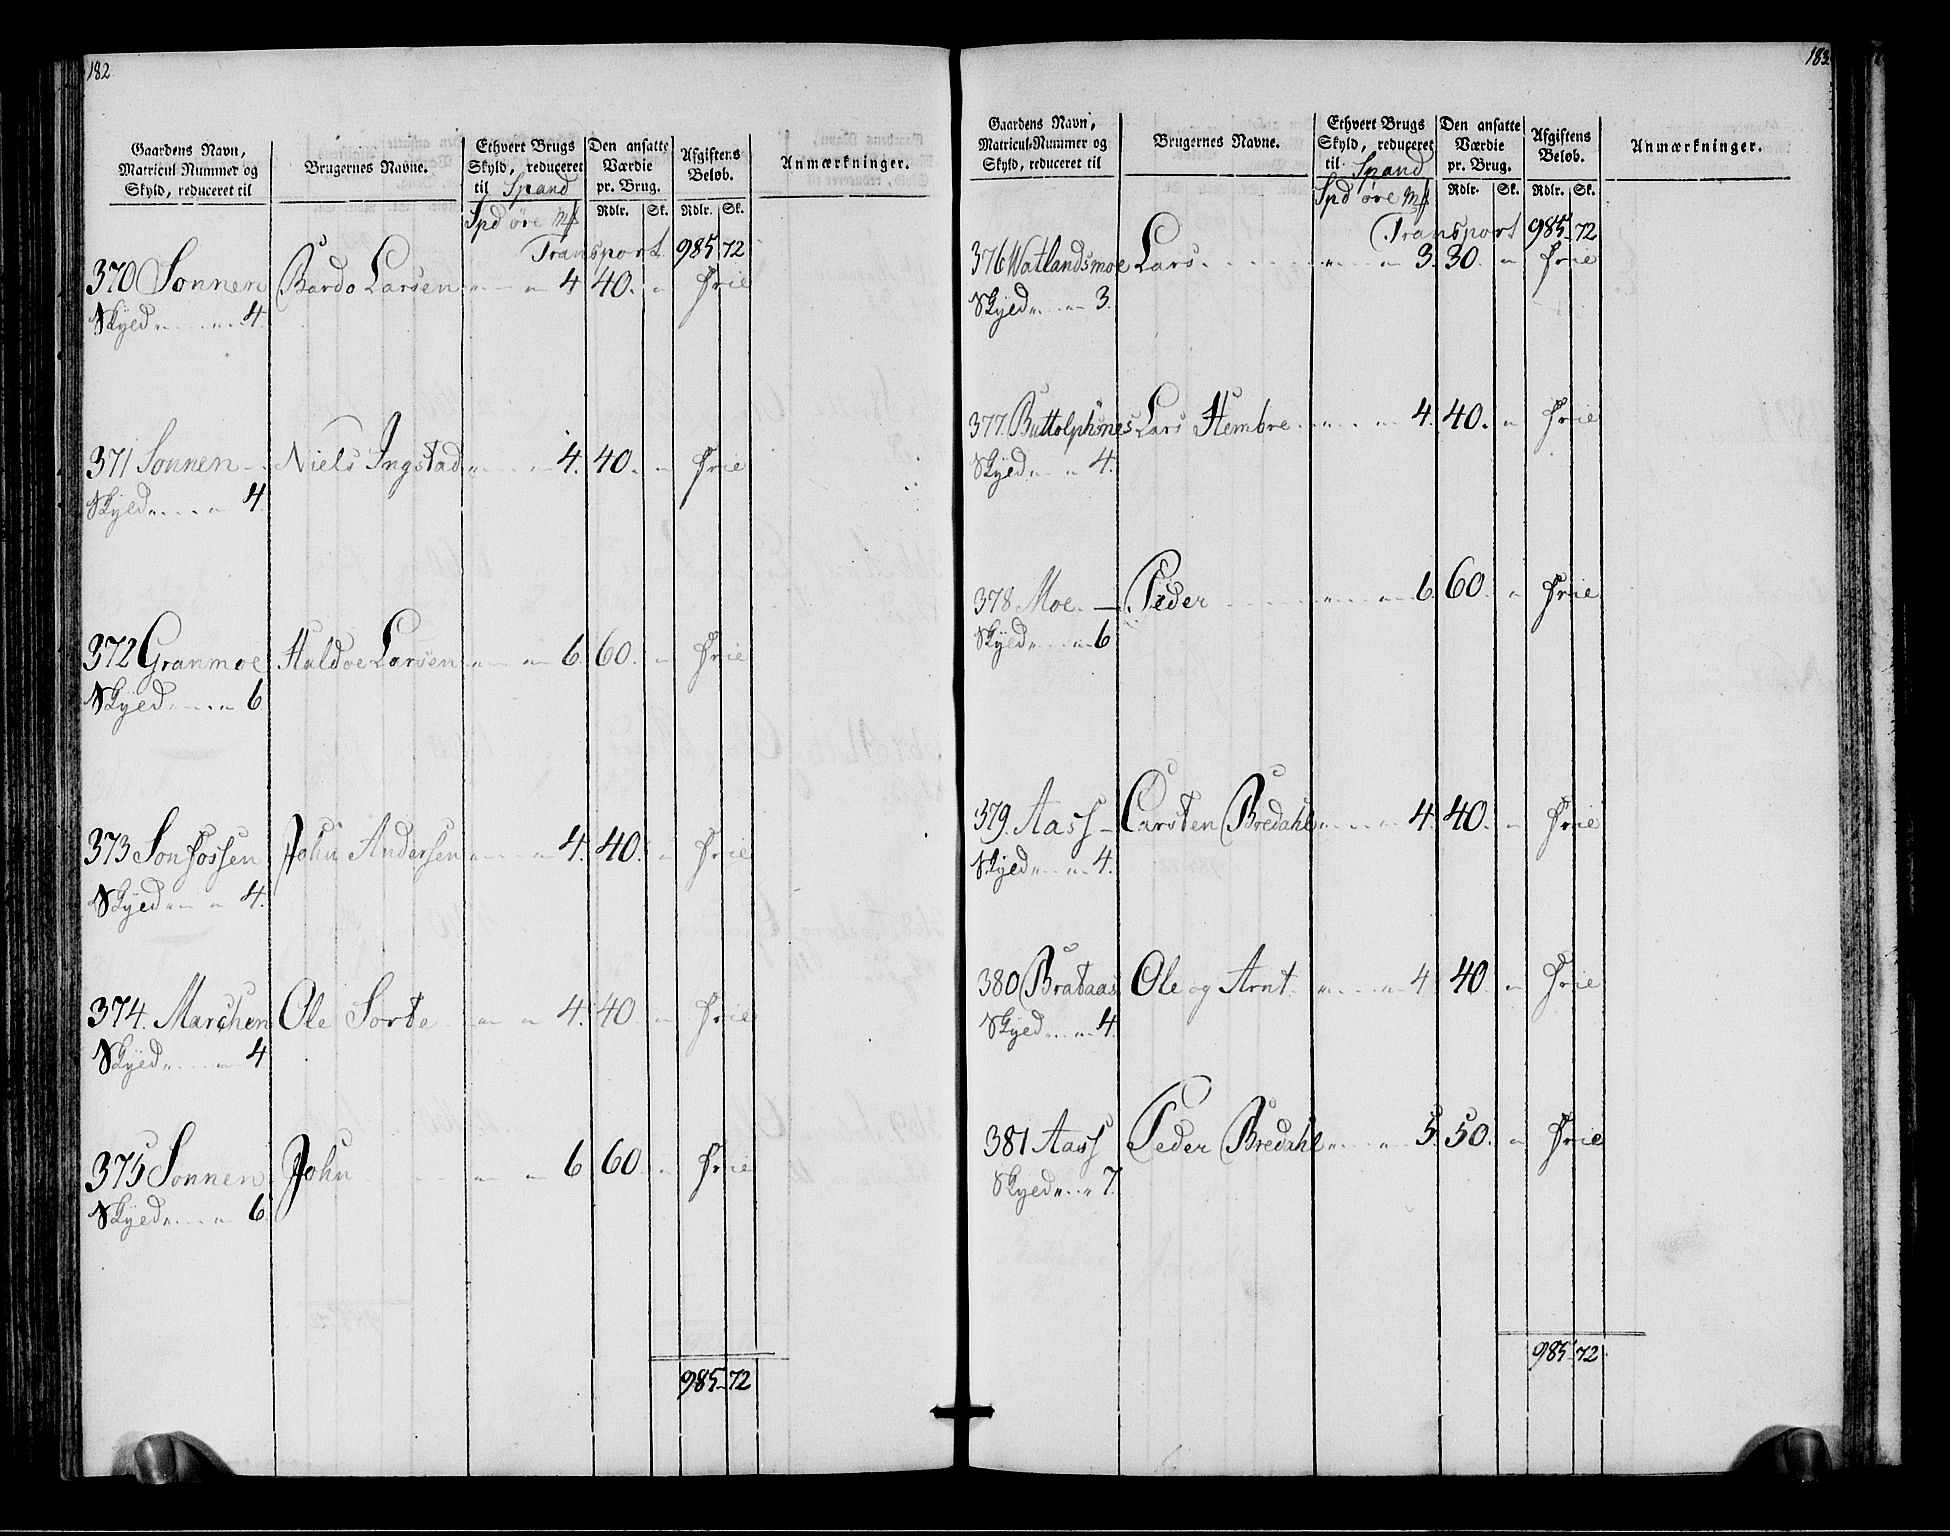 182.
Gaardens Navn, Matricul Nummer og Skyld, reduceret til
Brugernes Navne.
Ethvert Brugs Skyld, reduceret til Spand
Den ansatte Værdie pr. Brug.
Afgiftens Beløb.
Anmærkninger.
Spd øre Mk Rdlr. Sk. Rdlr. Sk.
Transport 985 72
370 Sonnen Bardo Larsen " " 4 40. " frie
Skyld " " 4.
371 Sonnen Niels Ingstad " " 4. 40. " frie
Skyld " " 4
372 Granmoe Haldoe Larsen " " 6. 60. " frie
Skyld " " 6
373 Sonfossen John Andersen " " 4. 40. " frie
Skyld " " 4.
374. Marchen Ole Sorte " " 4. 40. " frie
Skyld " " 4
375 Sonnen John " " 6 60. " frie
Skyld " " 6.
985 72
183.
Gaardens Navn, Matricul-Nummer og Skyld, reduceret til
Brugernes Navne.
Ethvert Brugs Skyld, reduceret til Spand
Den ansatte Værdie pr. Brug.
Afgiftens Beløb.
Anmærkninger.
Spd øre Mk Rdlr. Sk. Rdlr. Sk.
Transport 985 72
376 Watlandsmoe Lars " " 3. 30. " frie
Skyld " " 3.
377. Buttolphsnes Lars Hembre " " 4. 40. " frie
Skyld " " 4.
378 Moe. Peder " " 6. 60. " frie
Skyld " " 6
379. Aass Carsten Bredahl " " 4. 40. " frie
Skyld " " 4.
380 Brataas Ole og Arnt " " 4 40. " frie
Skyld " " 4.
381 Aass Peder Bredahl " " 5. 50. " frie
Skyld " " 7.
985 72